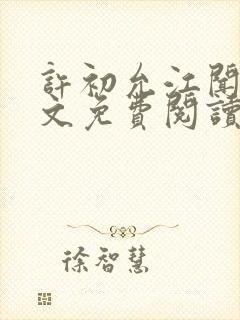 許初允江聞
文免費閱讀
徐智慧